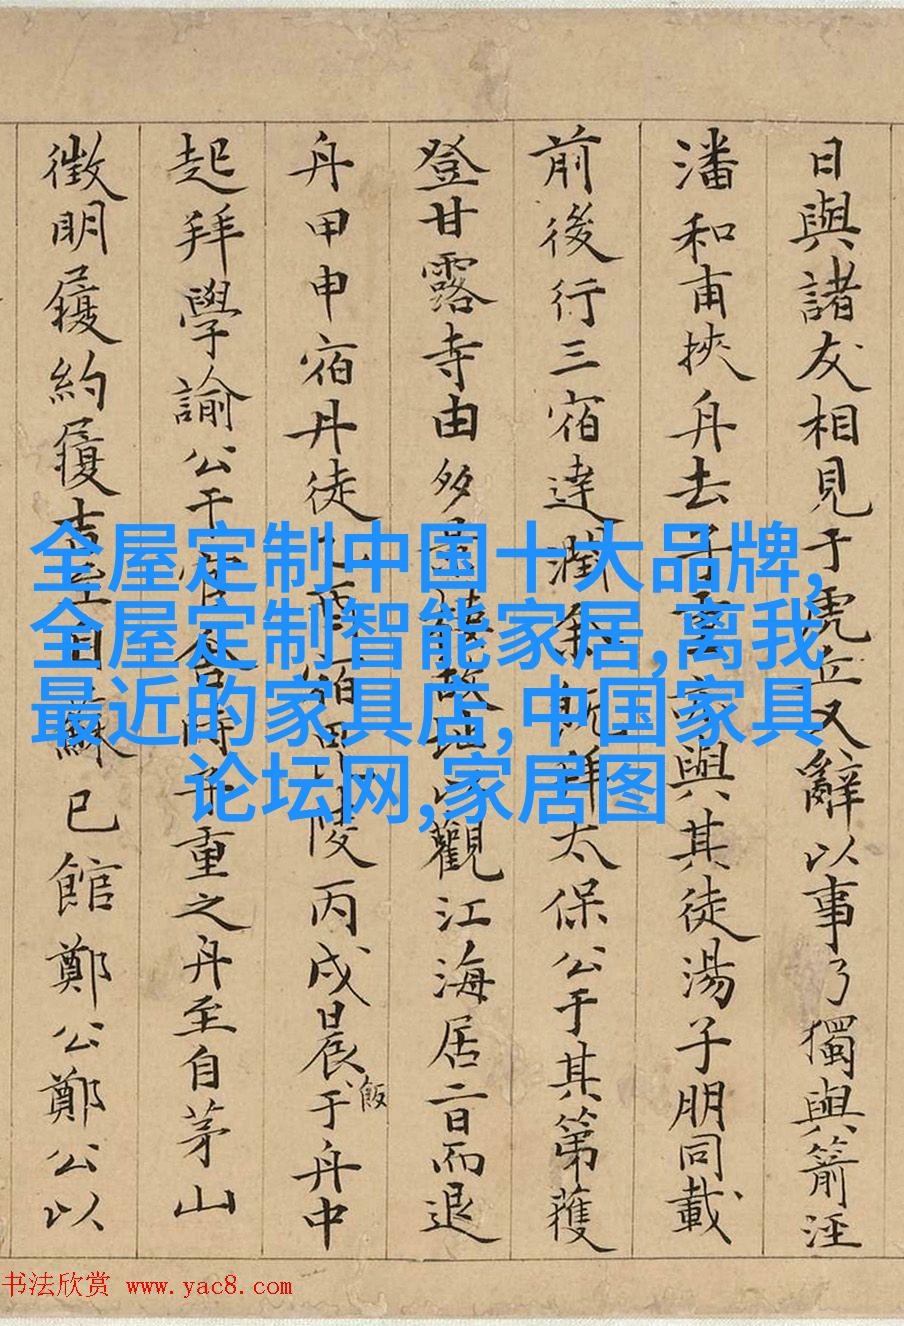 日與諸友相見于虎丘又辭以事乃獨與箭涇
潘和甫挾舟去子重亦與其徒湯子朋同載
前後行三宿達潤余既拜太保公于其第獲
登甘露寺由多景樓故址以觀江海居二日而退
舟甲申宿丹徒乙酉宿毘陵丙戌晨飯于舟中
起拜學諭公于官舍時子重之舟至自茅山
徵明履約履吉至自蘇已館鄭公鄭公以
全屋定制中国十大品牌,
全屋定制智能家居,离我
最近的家具店,中国家具
论坛网,家居图
书法欣赏 www.yac8.com